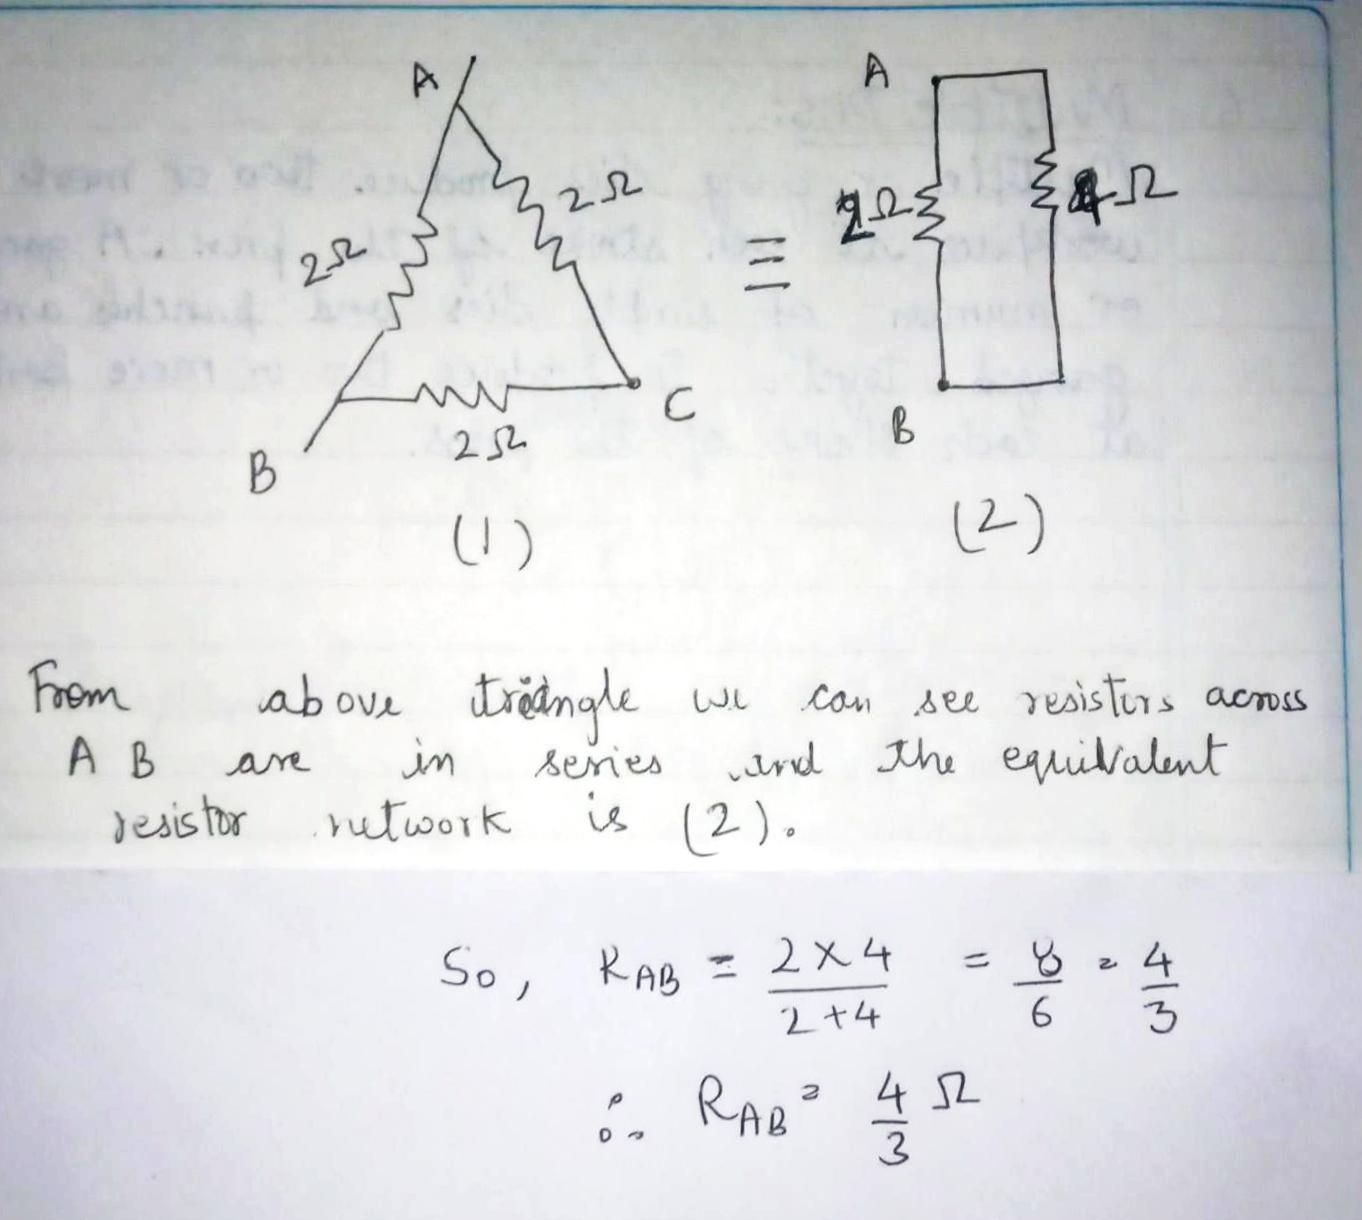 A
A
2Ω
2Ω
=
2Ω
4Ω
2Ω
C
B
B
(1)
(2)
From above triangle we can see resistors across
A B are in series and the equivalent
resistor network is (2).
So, RAB = 2×4/2+4 = 8/6 = 4/3
∴ RAB = 4/3 Ω